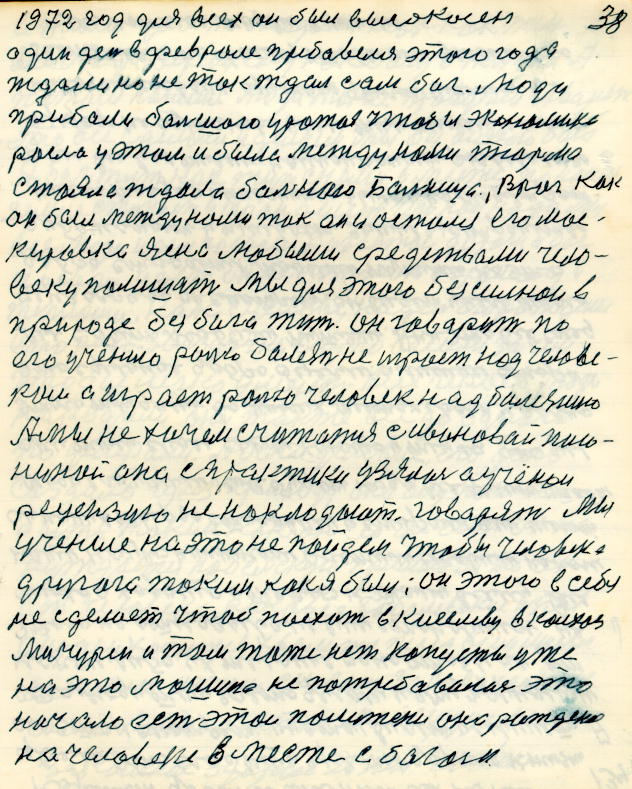 1972 год для всех он был высокосен 38
один ден в феврале прибавеля этого года
ждали но не так ждал сам бог. Люди
прибали балшого урожая чтобы экономика
росла у этом и была между ними тюрма
стояла ждала балного Балница, врач как
он был между ними так он и остался его мас-
кировка ясна любыми средствами чело-
веку помишат мы для этого безсилнои в
природе без бога тут. он говарит по
его учению ролю балезн не играет над челове-
ком а играет ролю человек над балезнию
Амы не хочем считатия с ивановай пол-
ниной она с практики узялас а учёнои
рецензию не накладают. говарят мы
учение на это не пойдем чтобы человека
другога таким как я был; он этого в себя
не сделает чтоб поехат в Киселеву в колхоз
Мичурин и там тоже нет капусты уже
на это машина не потребавалас это
начало ест этои политени она раждена
на человеке в месте с багом.